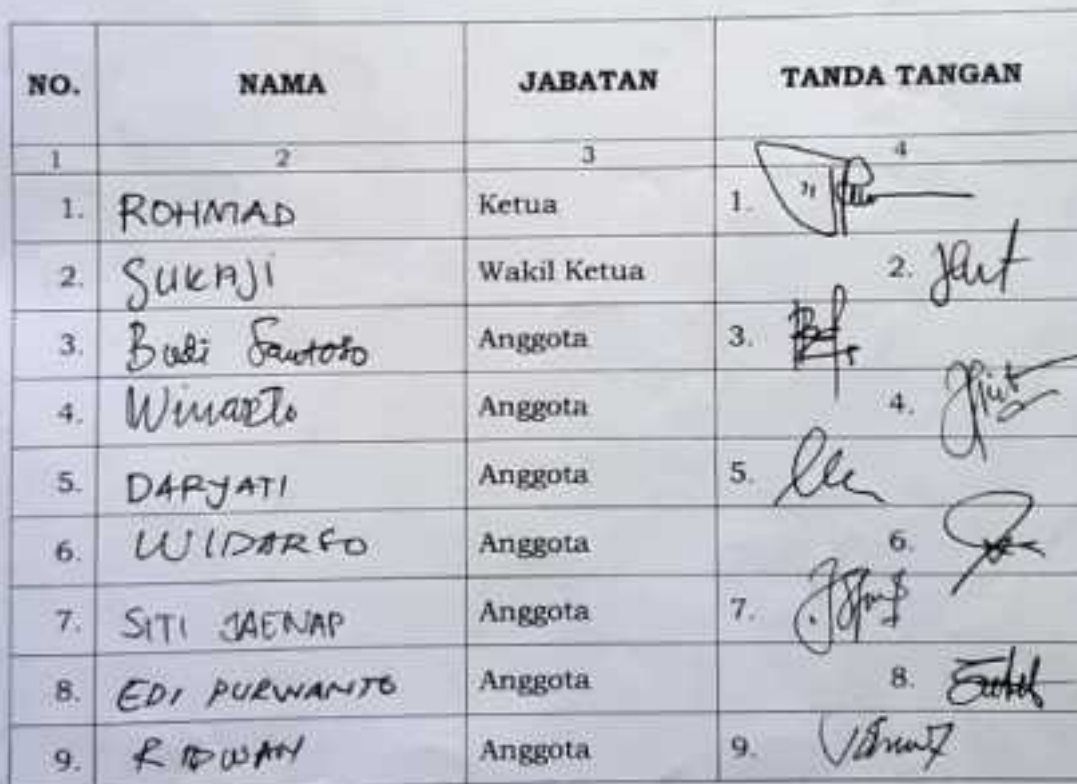 NO. NAMA JABATAN TANDA TANGAN
1 2 3 4
1. ROHMAD Ketua 1.
2. SUKAJI Wakil Ketua 2.
3. Budi Santoso Anggota 3.
4. Winarto Anggota 4.
5. DARYATI Anggota 5.
6. WIDARSO Anggota 6.
7. SITI JAENAP Anggota 7.
8. EDI PURWANTO Anggota 8.
9. RIDWAN Anggota 9.